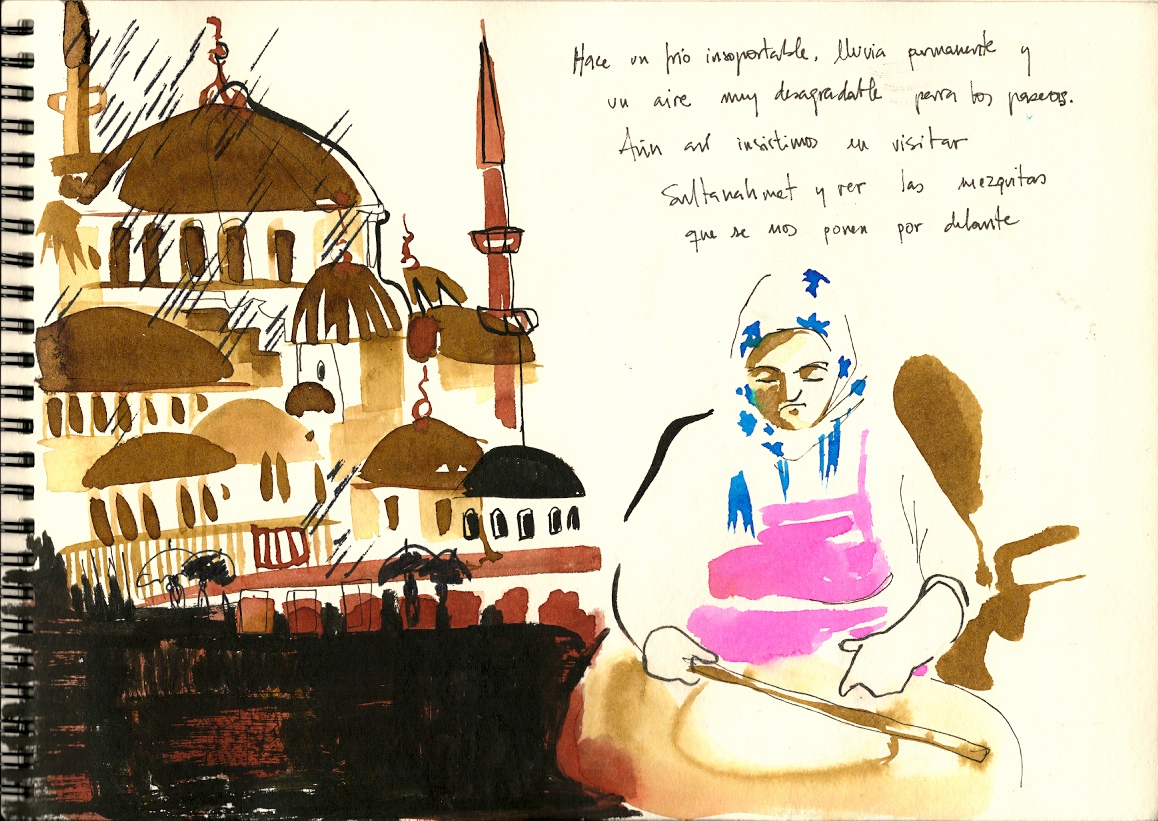 Hace un frío insoportable, lluvia permanente y
un aire muy desagradable para los paseos.
Aún así insistimos en visitar
Sultanahmet y ver las mezquitas
que se nos ponen por delante